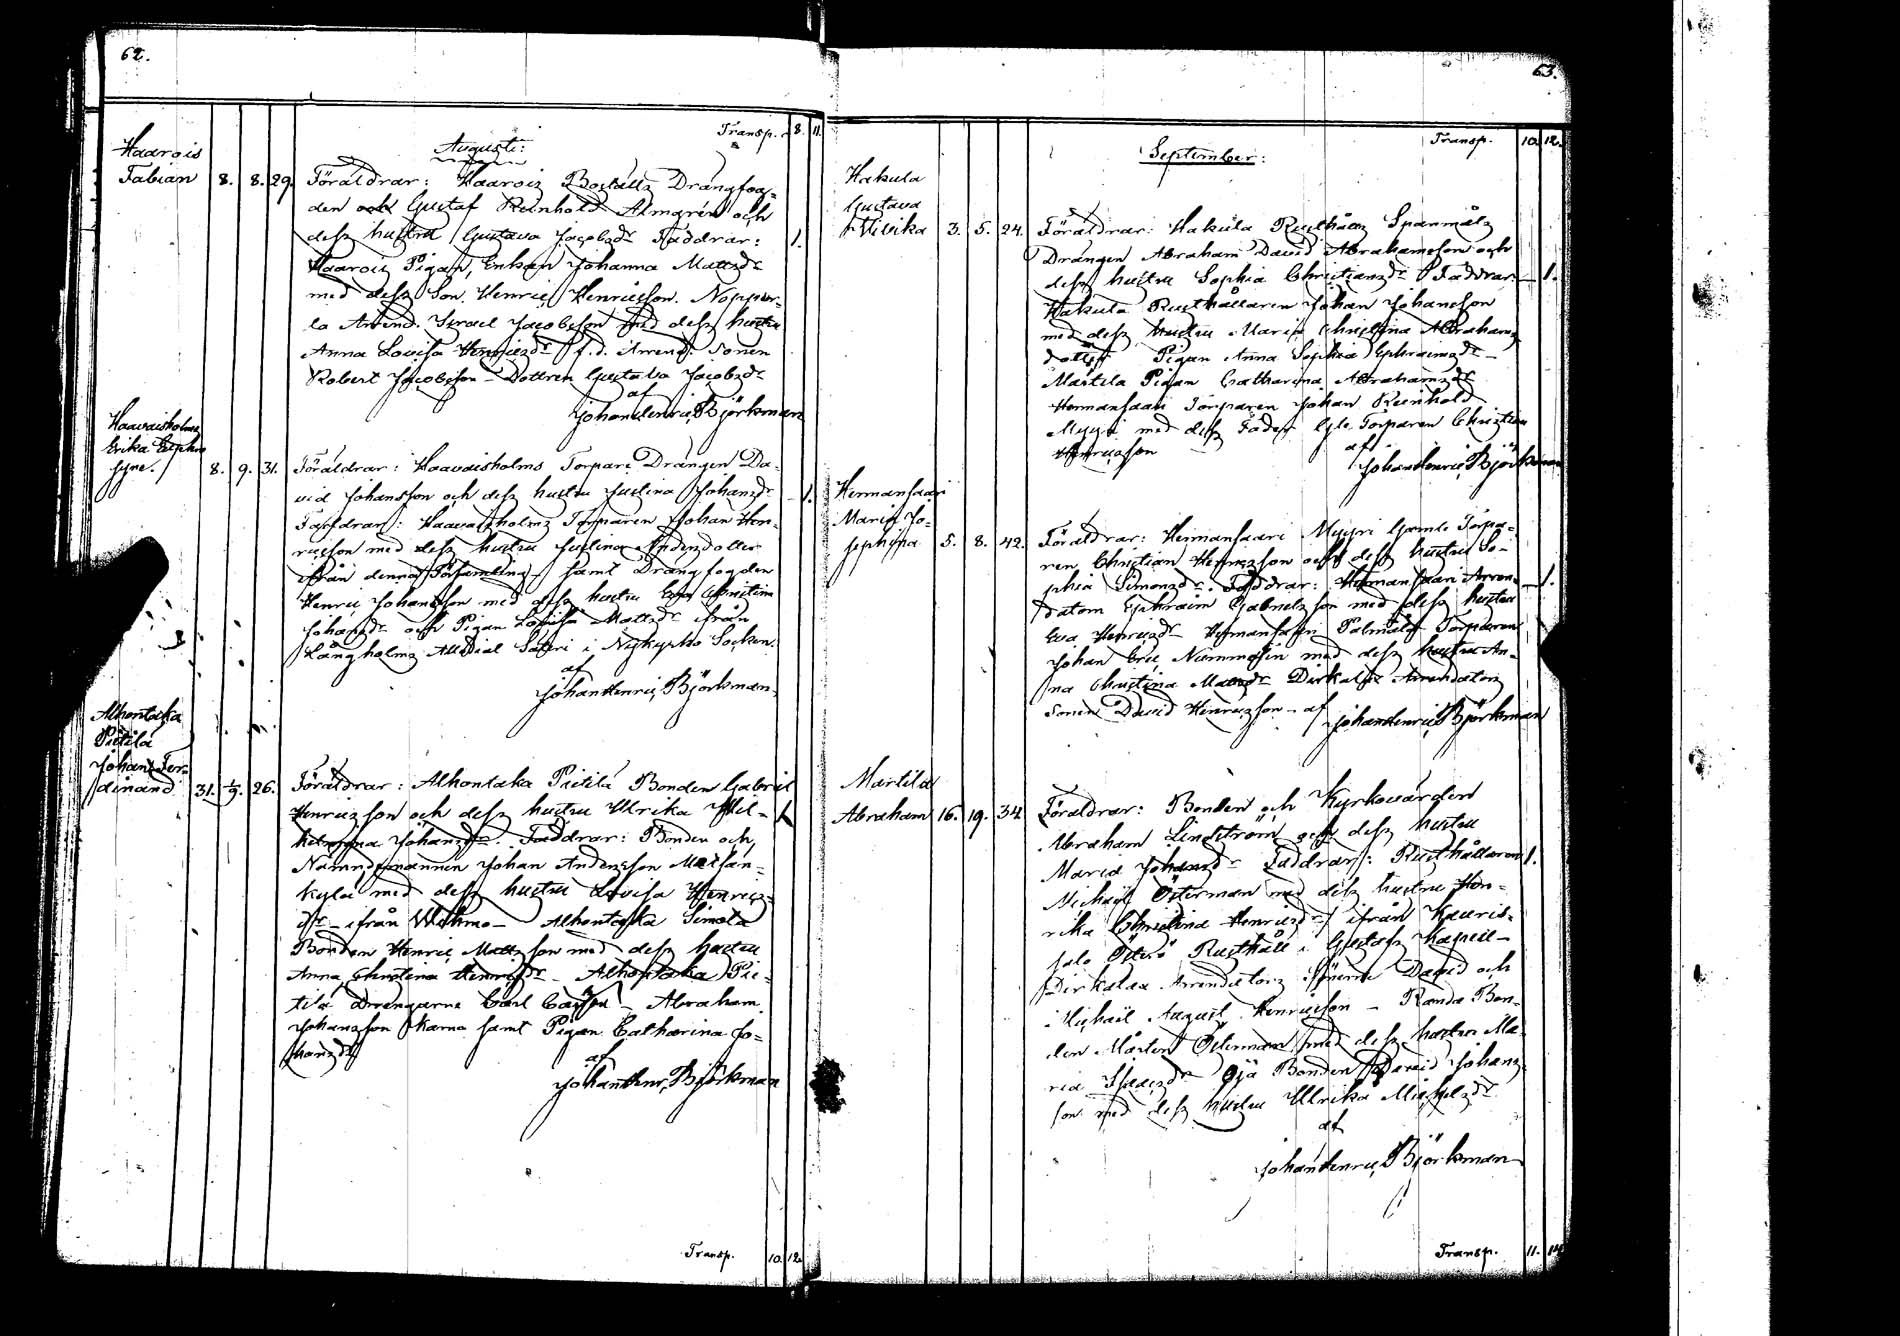 62.
Transp. 8. 11.
Augusti:
Haarois
Fabian 8. 8. 29. Föräldrar: Haarois Boställz Drängfog-
den och Gustaf Reinhold Almgrén och
dess hustru Gustava Jacobsdr Faddrar: 1.
Haarois Pigan, Enkan Johanna Mattsdr
med dess Son Henric Henricsson. Noppor-
la Arrend. Israel Jacobsson med dess hustru
Anna Lovisa Henricsdr f.d. Arrend. Sonen
Robert Jacobsson – Dottren Gustava Jacobsdr
af
Johan Henric Björkman
Haavaisholms
Erika Euphro
syne. 8. 9. 31. Föräldrar: Haavaisholms Torpare Drängen Da-
vid Johansson och dess hustru Justina Johansdr 1.
Faddrar: Haavaisholms Torparen Johan Hen-
ricsson med dess hustru Justina Andersdotter
ifrån denna Församling, samt Drängfogden
Henric Johansson med dess hustru Eva Christina
Johansdr och Pigan Lovisa Mattsdr ifrån
Långholms Allodial Säteri i Nykyrko Socken.
af
Johan Henric Björkman
Alhontaka
Pietilä
Johan Fer-
dinand 31. 1/9. 26. Föräldrar: Alhontaka Pietilä Bonden Gabriel
Henricsson och dess hustru Ulrika Wil- 1.
helmina Johansdr. Faddrar: Bonden och
Nämndemannen Johan Andersson
kylä med dess hustru Lovisa Henrics-
dr – ifrån Wehmo – Alhontaka Simola
Bonden Henric Mattsson med dess hustru
Anna Christina Henricsdr – Alhontaka Pie-
tilä drengarne Carl – Abraham
Johansson samt Pigan Catharina Jo-
hansdr
af
Johan Henr. Björkman
Transp. 10. 12.
63.
Transp. 10. 12.
September:
Hakula
Gustava
Milvika 3. 5. 24. Föräldrar: Hakula Rusthålls Spanmåls
Drängen Abraham David Abrahamsson och
dess hustru Sophia Christiansdr Faddrar: 1.
Hakula Rusthållaren Johan Johansson
med dess hustru Maria Christina Abrahams
dotter Pigan Anna Sophia Ephraimsdr –
Märtela Pigan Catharina Abrahamsdr
Hermansaari Torparen Johan Reinhold
Myyri med dess Fader Gle Torparen Christian
Henricsson af
Johan Henric Björkman
Hermansaari
Maria Jo-
sephina 5. 8. 42. Föräldrar: Hermansaari Myyri Gamle Torpa-
ren Christian Henricsson och dess hustru So-
phia Simonsdr. Faddrar: Hermansaari Arren- 1.
datorn Ephraim Gabrielsson med dess hustru
Eva Henricsdr Hermansaari Palmälä Torparen
Johan Eric Nummelin med dess hustru An-
na Christina Mattsdr Dirkalax Arrendators
Sonen David Henricsson – af Johan Henric Björkman
Martila
Abraham 16. 19. 34. Föräldrar: Bonden och Kyrkovärden
Abraham Lindström och dess hustru
Maria Johansdr Faddrar: Rusthållaren 1.
Michaël Österman med dess hustru Hen-
rika Christina Henricsdr ifrån Kauris-
salo Österö Rusthåll i Gustafs Kapell –
Dirkalax Arrendators Sönerne David och
Michaël August Henricsson – Randa Bon-
den Mårten Österman med dess hustru Ma-
ria Isaacsdr Öjä Bonden David Johans-
son med dess hustru Ulrika Michelsdr
af
Johan Henric Björkman
Transp. 11. 14.